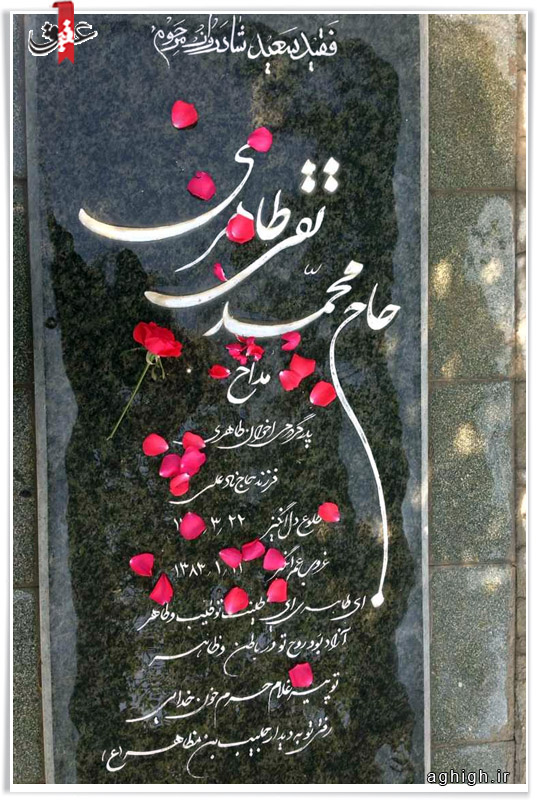 عقیق
فقید سعید شادروان مرحوم
حاج محمّد تقی طاهری
مداح
پدر گرامی اخوان طاهری
فرزند حاج نادعلی
طلوع دل انگیز ۲۲ ٫ ۳ ٫
غروب غم انگیز ۱۱ ٫ ۱ ٫ ۱۳۸۳
ای طاهری ای طینت تو طیب و طاهر
آزاد بود روح تو در باطن و ظاهر
تو پیر غلام حرم خون خدایی
رفتی تو به دیدار حبیب بن مظاهر (ع)
aghigh.ir